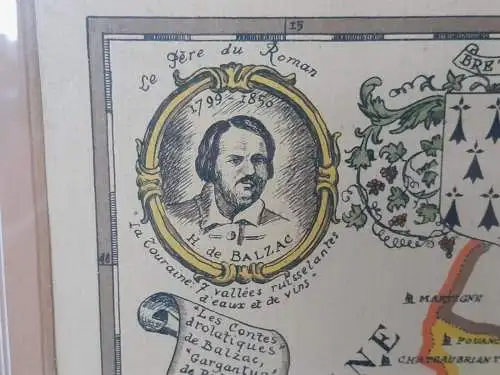 15
Le Père du Roman
1799-1850
H. de BALZAC
"la Touraine: 7 vallées ruisselantes
d'eaux et de vins"
"Les Contes
drolatiques"
de Balzac,
"Gargantua"
BRET
48
MARTIGNE
POUANC
CHATEAUBRIANT
NE